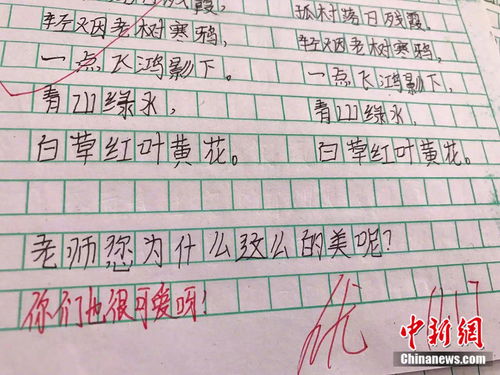 残霞，
轻烟老树寒鸦，
一点飞鸿影下。
青山绿水，
白草红叶黄花。
孤村落日残霞，
轻烟老树寒鸦，
一点飞鸿影下，
青山绿水，
白草红叶黄花。
老师您为什么这么的美呢？
你们也很可爱呀！
优
中新网
Chinanews.com